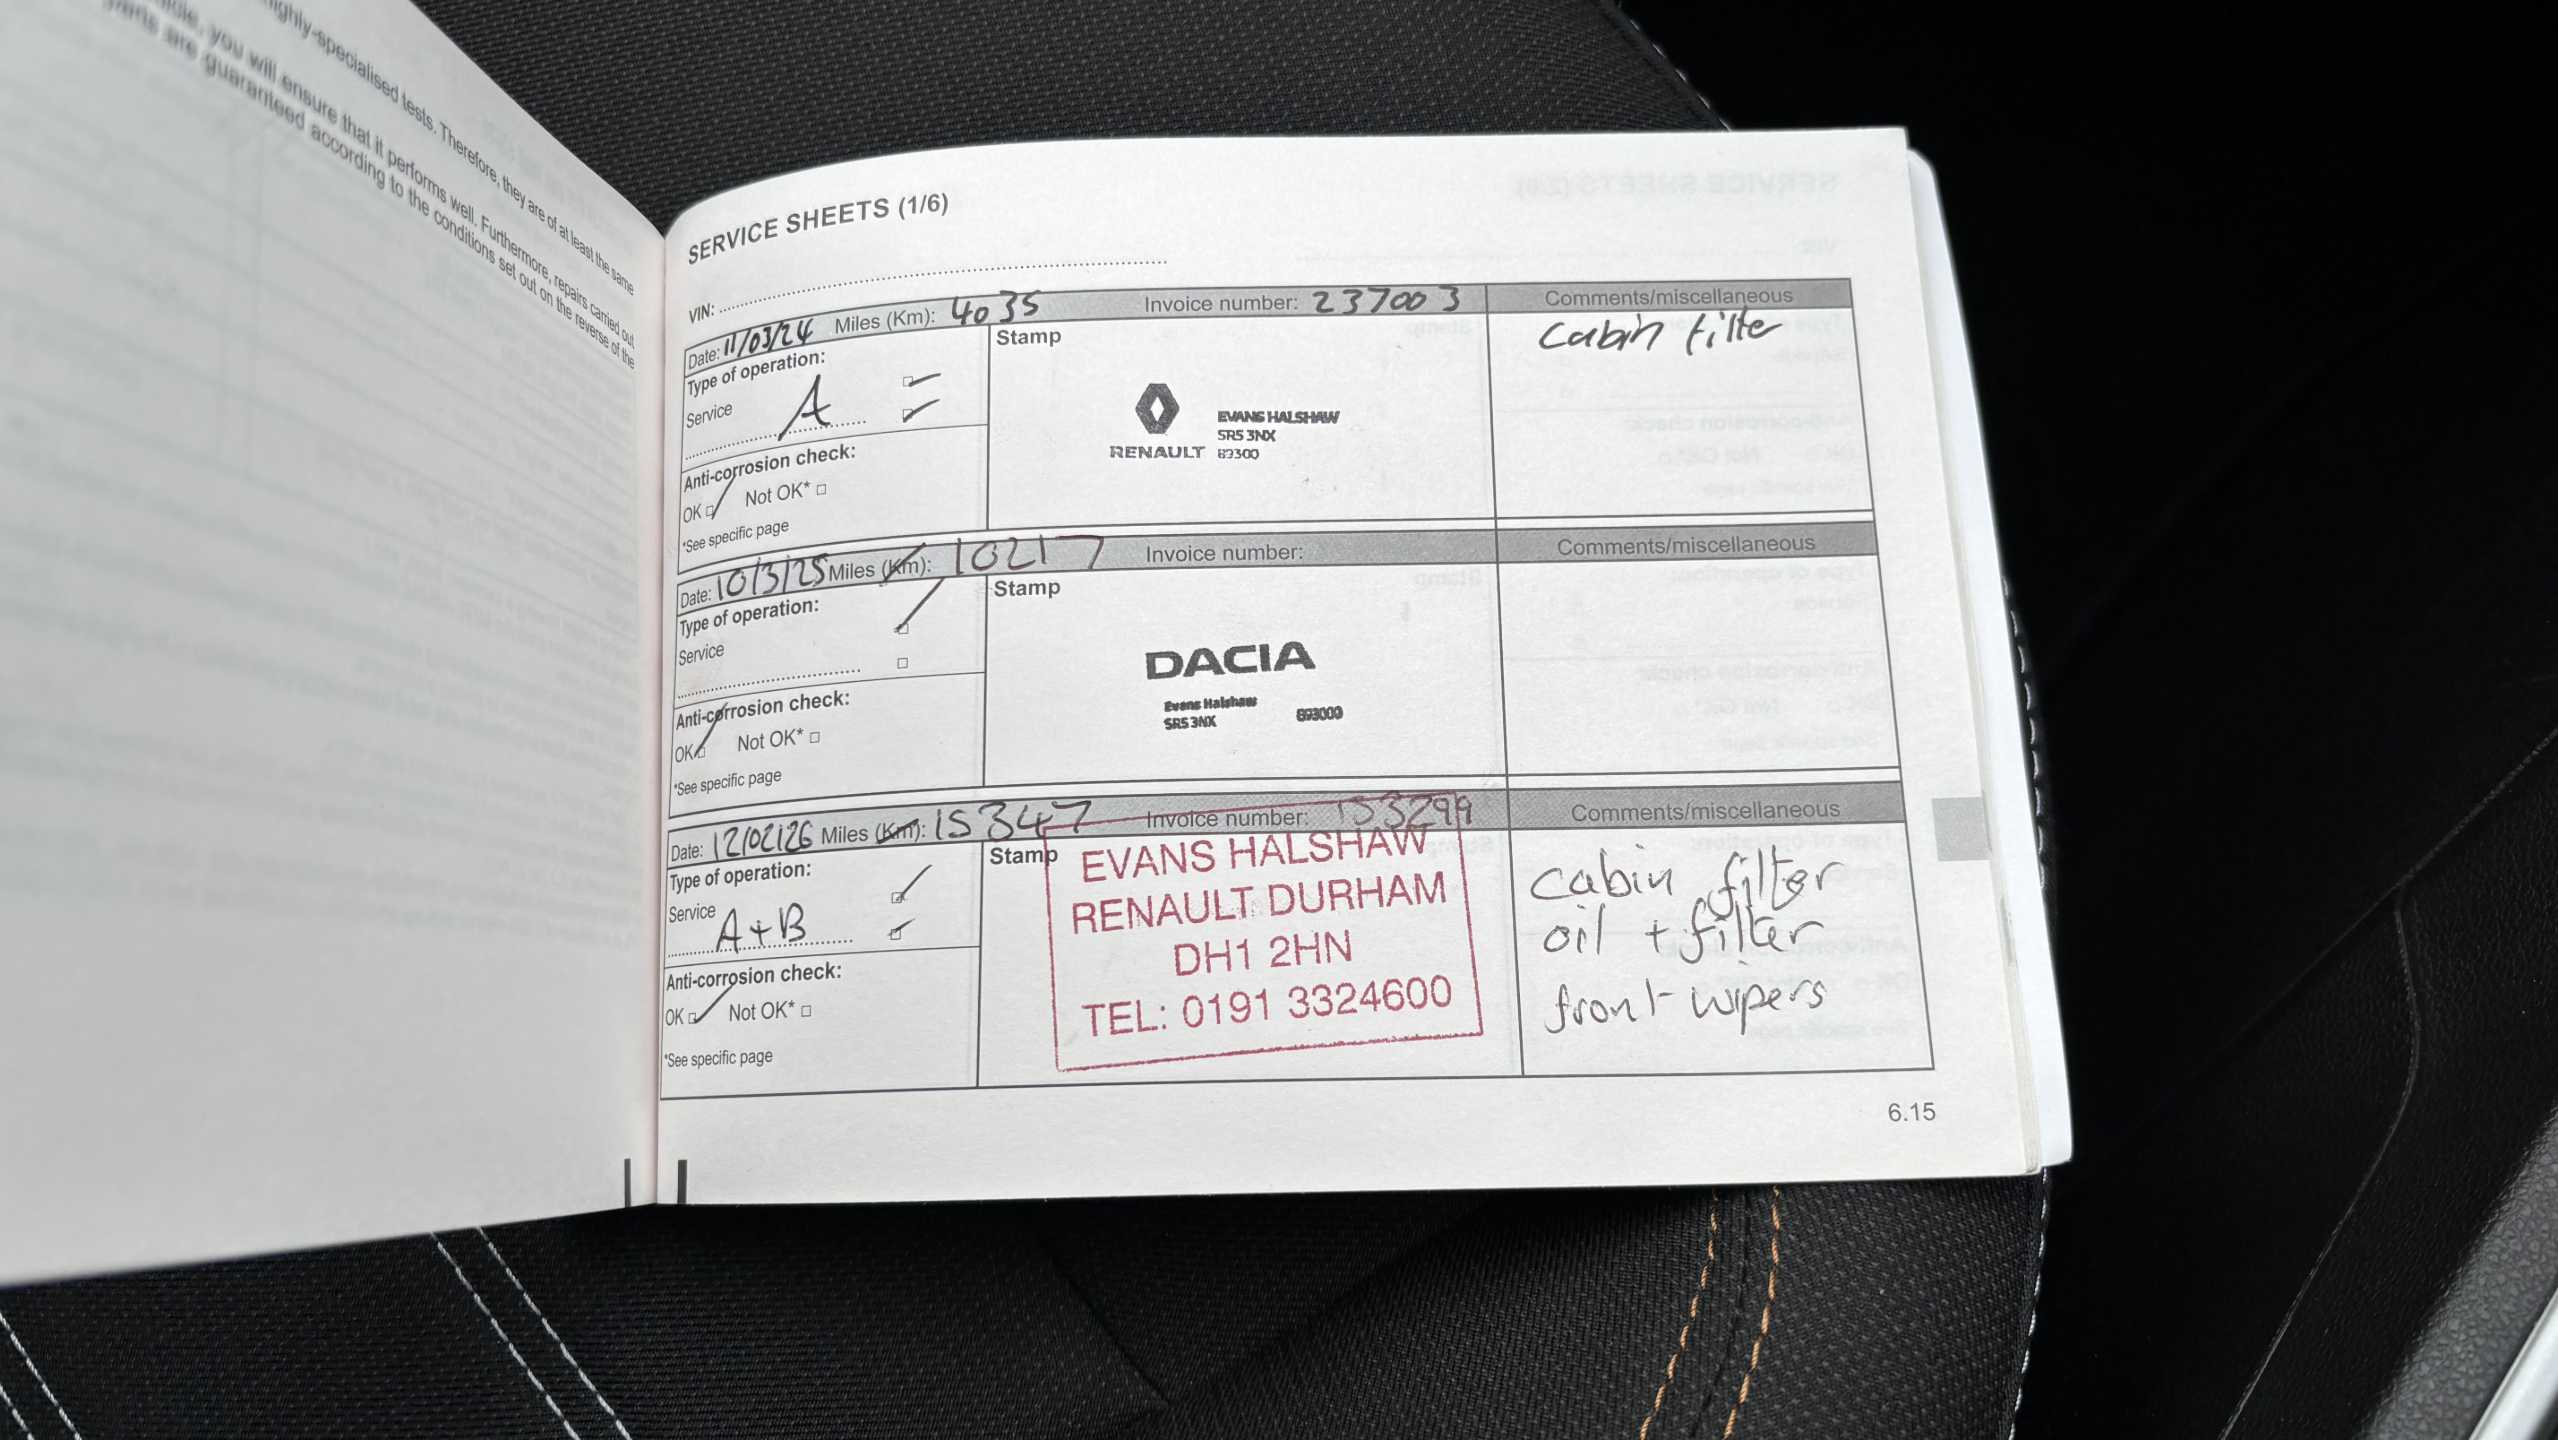 highly-specialised tests. Therefore, they are of at least the same
you will ensure that it performs well. Furthermore, repairs carried out
parts are guaranteed according to the conditions set out on the reverse of the
SERVICE SHEETS (1/6)
VIN:
Date: 11/03/24 Miles (Km): 4035 Invoice number: 237003 Comments/miscellaneous
Type of operation:
Service A
Stamp
Cabin filter
RENAULT
EVANS HALSHAW
SR5 3NX
89300
Anti-corrosion check:
OK Not OK*
*See specific page
Date: 10/3/25 Miles (Km): 10217 Invoice number: Comments/miscellaneous
Type of operation:
Service
Stamp
DACIA
Evans Halshaw
SR5 3NX 893000
Anti-corrosion check:
OK Not OK*
*See specific page
Date: 12/02/26 Miles (Km): 15347 Invoice number: 153299 Comments/miscellaneous
Type of operation:
Service A+B
Stamp
EVANS HALSHAW
RENAULT DURHAM
DH1 2HN
TEL: 0191 3324600
cabin filter
oil + filter
front wipers
Anti-corrosion check:
OK Not OK*
*See specific page
6.15